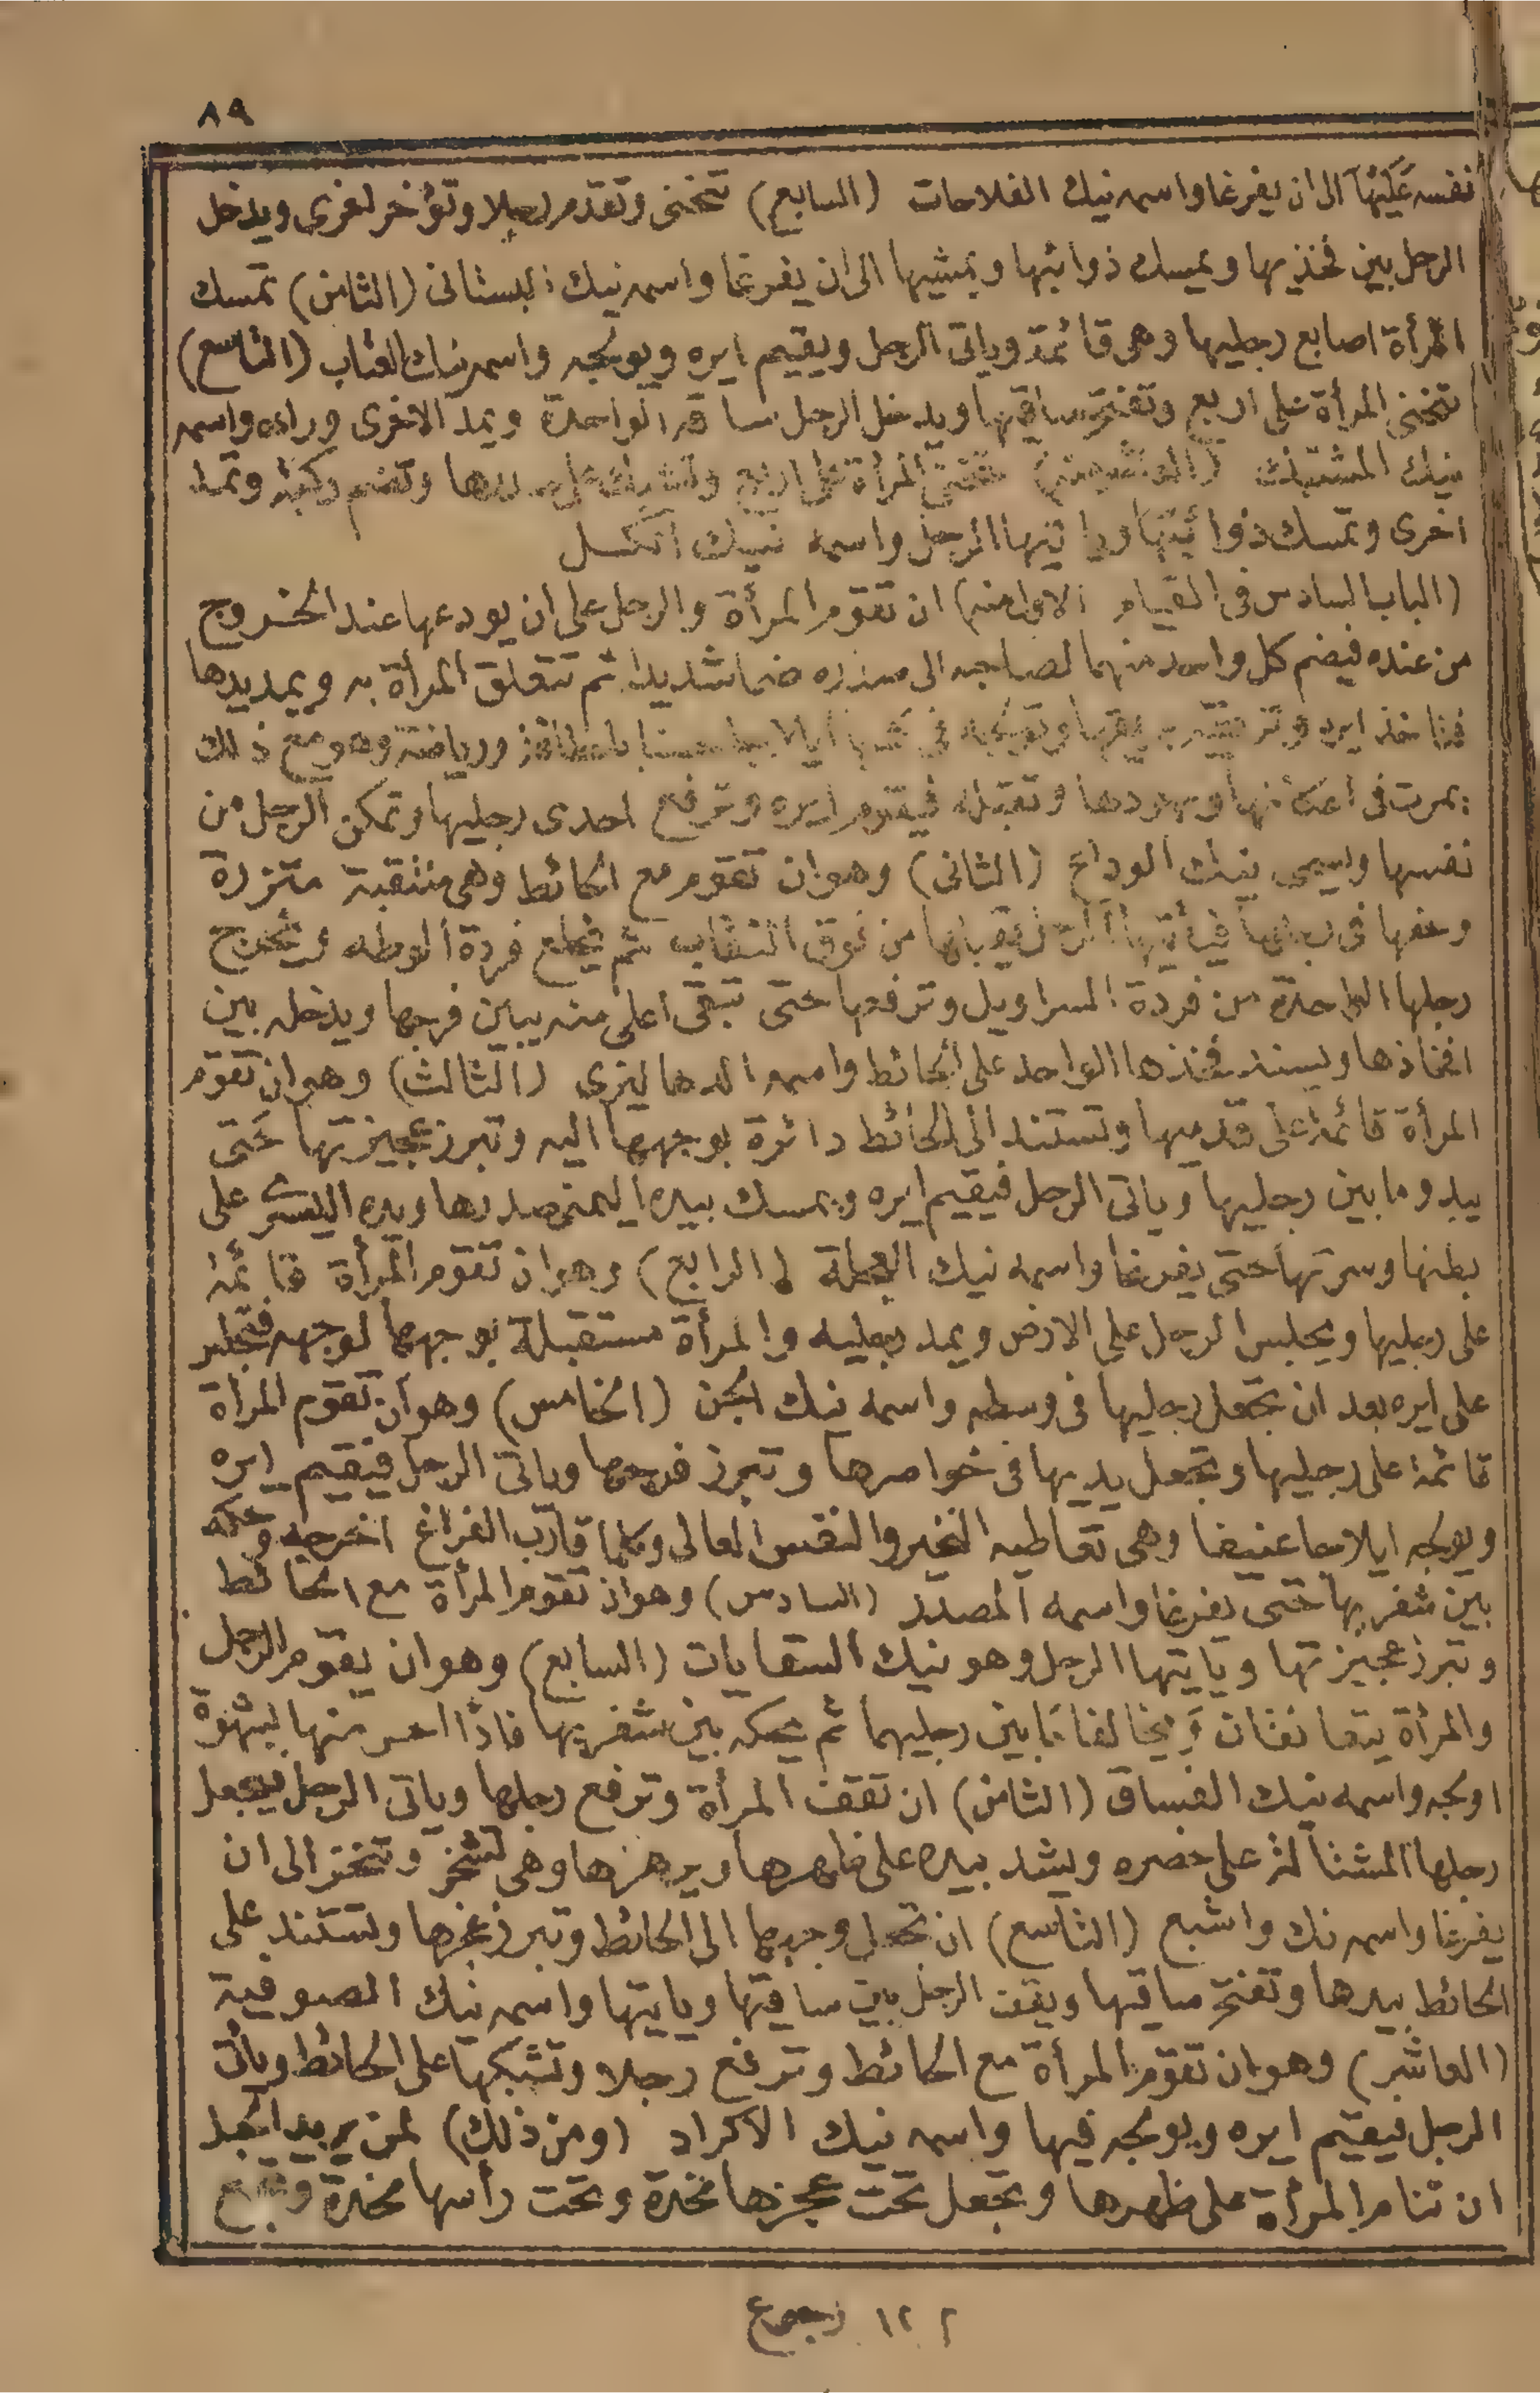 ٨٩
نفسه عليها الى ان يفرغا واسمه نيك الفلاحات (السابع) تنحنى وتقدم رجلا وتؤخر اخرى ويدخل
الرجل بين فخذيها ويمسك ذوائبها ويمشيها الى ان يفرغا واسمه نيك البستانى (الثامن) تمسك
المرأة اصابع رجليها وهى قائمة وياتى الرجل ويقيم ايره ويولجه واسمه نيك العتاب (التاسع)
تنحنى المرأة على اربع وتفتح ساقيها ويدخل الرجل ساقه الواحدة ويمد الاخرى وراءه واسمه
نيك المشتبك (العاشر) تنحنى المرأة على اربع وتضم ركبة وتمد
اخرى وتمسك ذوائبها وياتيها الرجل واسمه نيك الكسل
(الباب السادس فى القيام الاول منه) ان تقوم المرأة والرجل على ان يودعها عند الخروج
من عنده فيضم كل واحد منهما لصاحبه الى صدره ضما شديدا ثم تتعلق المرأة به ويمد يدها
فتاخذ ايره وتولجه فى ايلاجا حسنا بلطافة ورياضة وهو مع ذلك
يمرت فى اعكانها ونهودها وتقبله فيقوم ايره وترفع احدى رجليها وتمكن الرجل من
نفسها ويسمى نيك الوداع (الثانى) وهو ان تقوم مع الحائط وهى منتقبة متزرة
وخفها فى رجلها فيأتيها الرجل يقبلها من فوق النقاب ثم يخلع فردة الوطه ويخرج
رجلها الواحدة من فردة السراويل وترفعها حتى تبقى اعلى منه يباين فرجها ويدخله بين
افخاذها ويسند فخذها الواحد على الحائط واسمه الدهاليزى (الثالث) وهو ان تقوم
المرأة قائمة على قدميها وتستند الى الحائط دائرة بوجهها اليه وتبرز عجيزتها حتى
يبدو ما بين رجليها وياتى الرجل فيقيم ايره ويمسك بيده اليمنى صدرها ويده اليسرى على
بطنها وسرتها حتى يفرغا واسمه نيك العجلة (الرابع) وهو ان تقوم المرأة قائمة
على رجليها ويجلس الرجل على الارض ويمد رجليه والمرأة مستقبلة بوجهها لوجهه فتجلس
على ايره بعد ان تجعل رجليها فى وسطه واسمه نيك الجن (الخامس) وهو ان تقوم المرأة
قائمة على رجليها وتجعل يديها فى خواصرها وتبرز فرجها وياتى الرجل فيقيم ايره
ويولجه ايلاجا عنيفا وهى تعاطيه النخير والنفس العالى وكلما قارب الفراغ اخرجه وحكه
بين شفريها حتى يفرغا واسمه المصدر (السادس) وهو ان تقوم المرأة مع الحائط
وتبرز عجيزتها ويايتها الرجل وهو نيك السقايات (السابع) وهو ان يقوم الرجل
والمرأة يتعانفان ويخالفا مابين رجليهما ثم يحكه بين شفريها فاذا احس منها بشهوة
اولجه واسمه نيك الفساق (الثامن) ان تقف المرأة وترفع رجلها وياتى الرجل يجعل
رجلها المشتالة على خصره ويشد بيده على ظهرها ويرهزها وهى تشخر وتنخر الى ان
يفرغا واسمه نك واشبع (التاسع) ان تحول وجهها الى الحائط وتبرز عجزها وتستند على
الحائط بيدها وتفتح ساقيها ويقف الرجل بين ساقيها ويايتها واسمه نيك الصوفية
(العاشر) وهو ان تقوم المرأة مع الحائط وترفع رجلا وتشبكها على الحائط ويأتى
الرجل فيقيم ايره ويولجه فيها واسمه نيك الاكراد (ومن ذلك) لمن يريد الحبل
ان تنام المرأة على ظهرها وتجعل تحت عجزها مخدة وتحت رأسها مخدة
م ١٢ رجوع